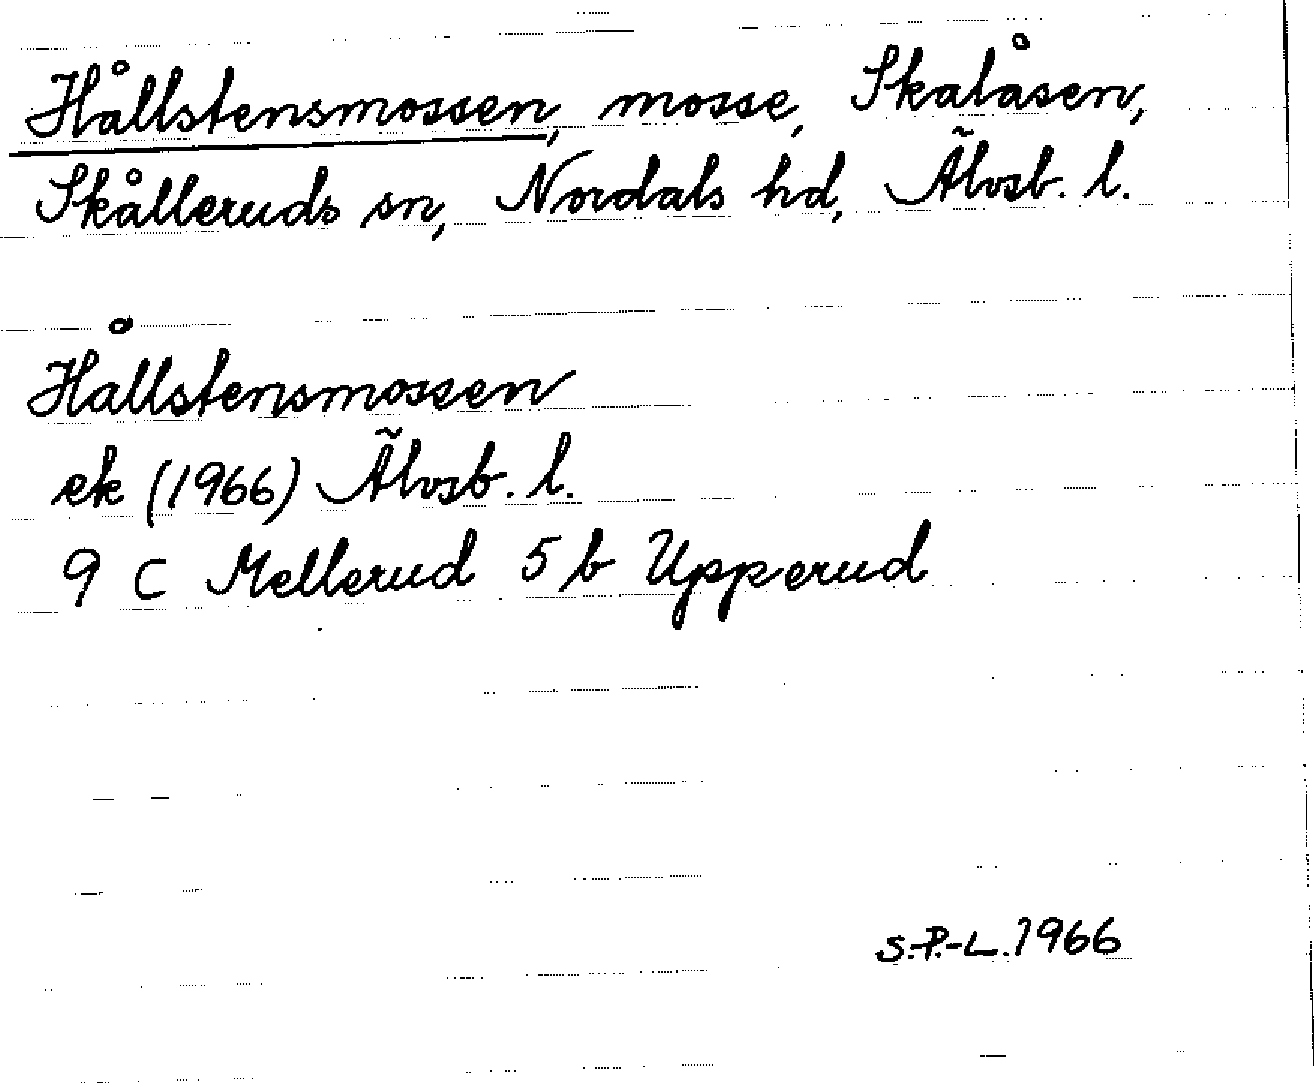 Hållstensmossen, mosse, Skalåsen,
Skålleruds sn, Nordals hd, Älvsb. l.
Hållstensmossen
ek (1966) Älvsb. l.
9 C Mellerud 5 b Upperud
S.-P.-L. 1966